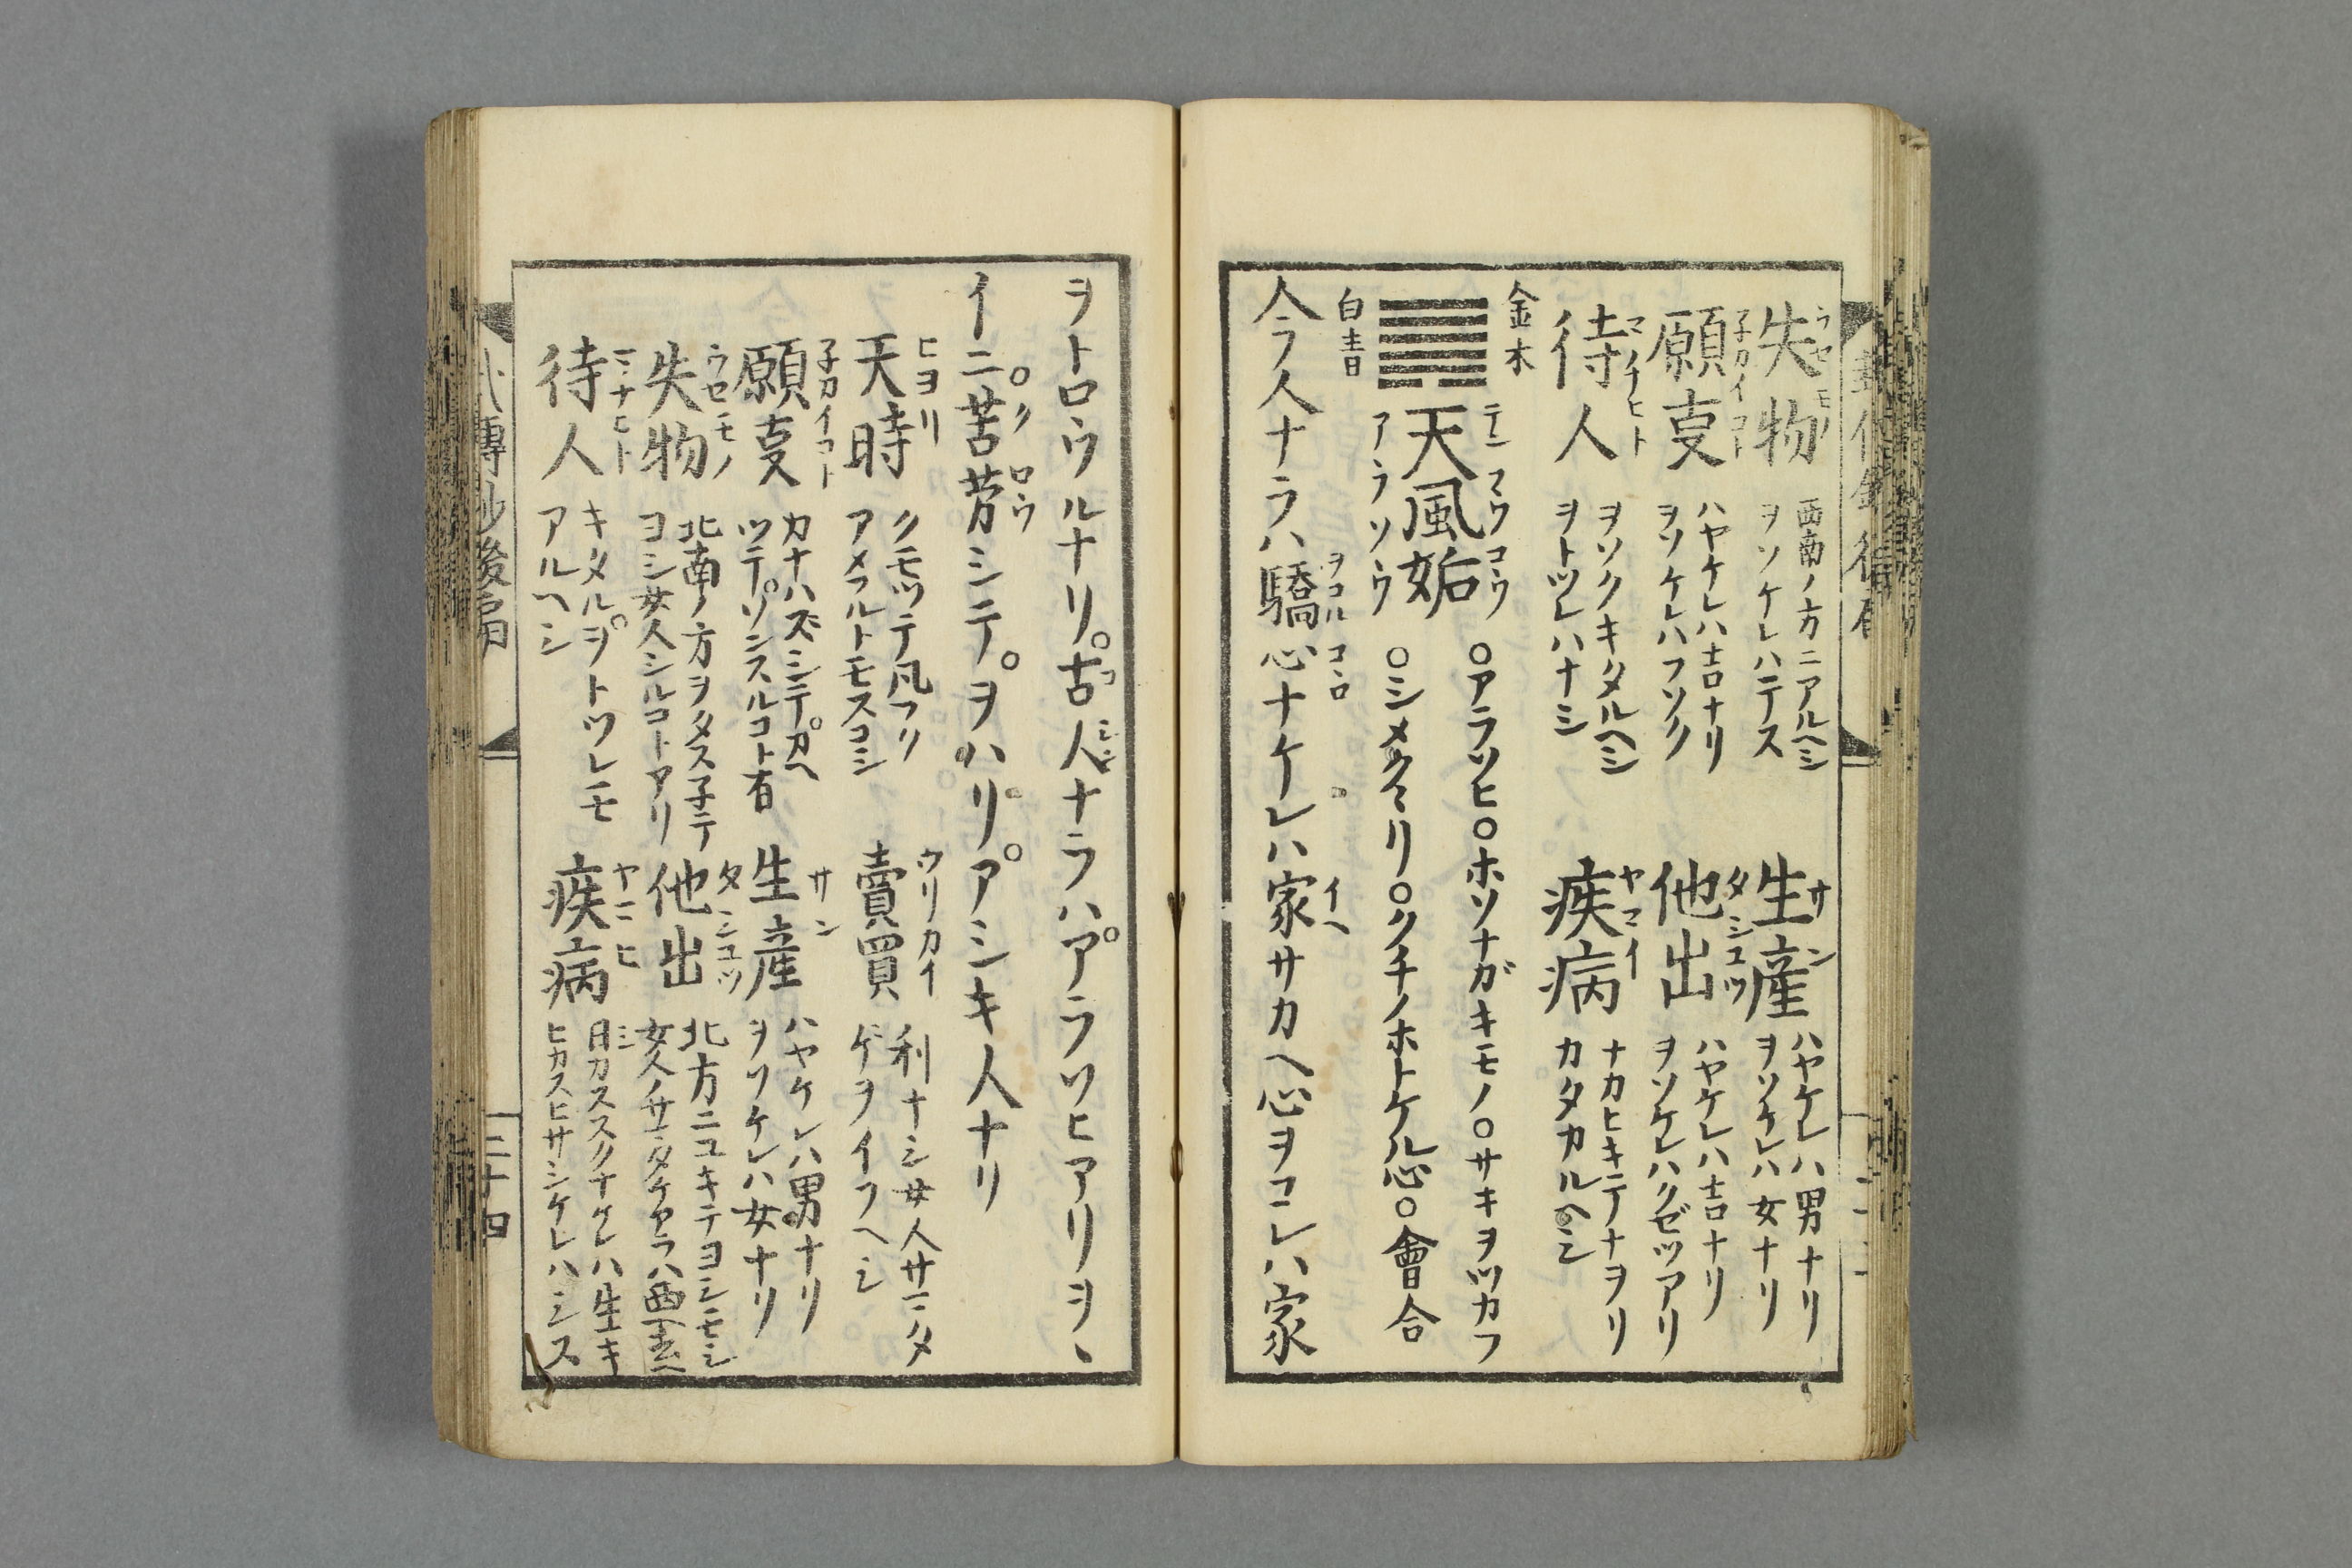 失物 西南ノ方ニアルヘシ
ヲソケレハテス
生産 ハヤケレハ男ナリ
ヲソケレハ女ナリ
願叓 ハヤケレハ吉ナリ
ヲソケレハフソク
他出 ハヤケレハ吉ナリ
ヲソケレハクゼツアリ
待人 ヲソクキタルヘシ
ヲトツレハナシ
疾病 ナカヒキテナヲリ
カタカルヘシ
金木
天風姤
テンフウコウ
アラソウ
白青
○アラソヒ○ホソナガキモノ○サキヲツカフ
○シメクヽリ○クチノホトケル心○會合
今ノ人ナラハ驕心ナケレハ家サカヘ心ヲコレハ家
ヲトロウルナリ古人ナラハアラソヒアリヲヽ
イニ苦労シテヲハリアシキ人ナリ
天時 クモツテ凨フリ
アメフルトモスコシ
賣買 利ナシ女人サマタ
ゲヲイフヘシ
願叓 カナハズシテカヘ
ツテソンスルコト有
生産 ハヤケレハ男ナリ
ヲソケレハ女ナリ
失物 北南ノ方ヲタス子テ
ヨシ女人シルコトアリ
他出 北方ニユキテヨシモシ
女人ノサマタケアラハ西
待人 キタルヲトツレモ
アルヘシ
疾病 日カススクナケレハ生キ
ヒカスヒサシケレハシス
傳抄後扁
三十四